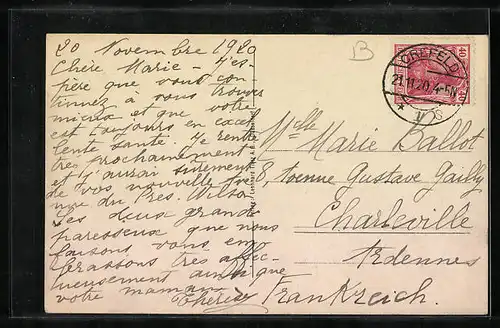 20 Novembre 1920
Chère Marie – J'es-
père que vous con-
tinuez à vous trouver
mieux et que votre
est toujours en excel
lente santé. Je rentre
très prochainement
et j'aurai sûrement
de vos nouvelles
nue du Pres. Wilson
Les deux grande
paresseuse que nous
faisons, vous em
brassons très affec-
tueusement ainsi que
votre maman
Thérèse
B
CREFELD
21.11.20. 4-5N
Melle Marie Ballot
8, avenue Gustave Gailly
Charleville
Ardennes
Frankreich.